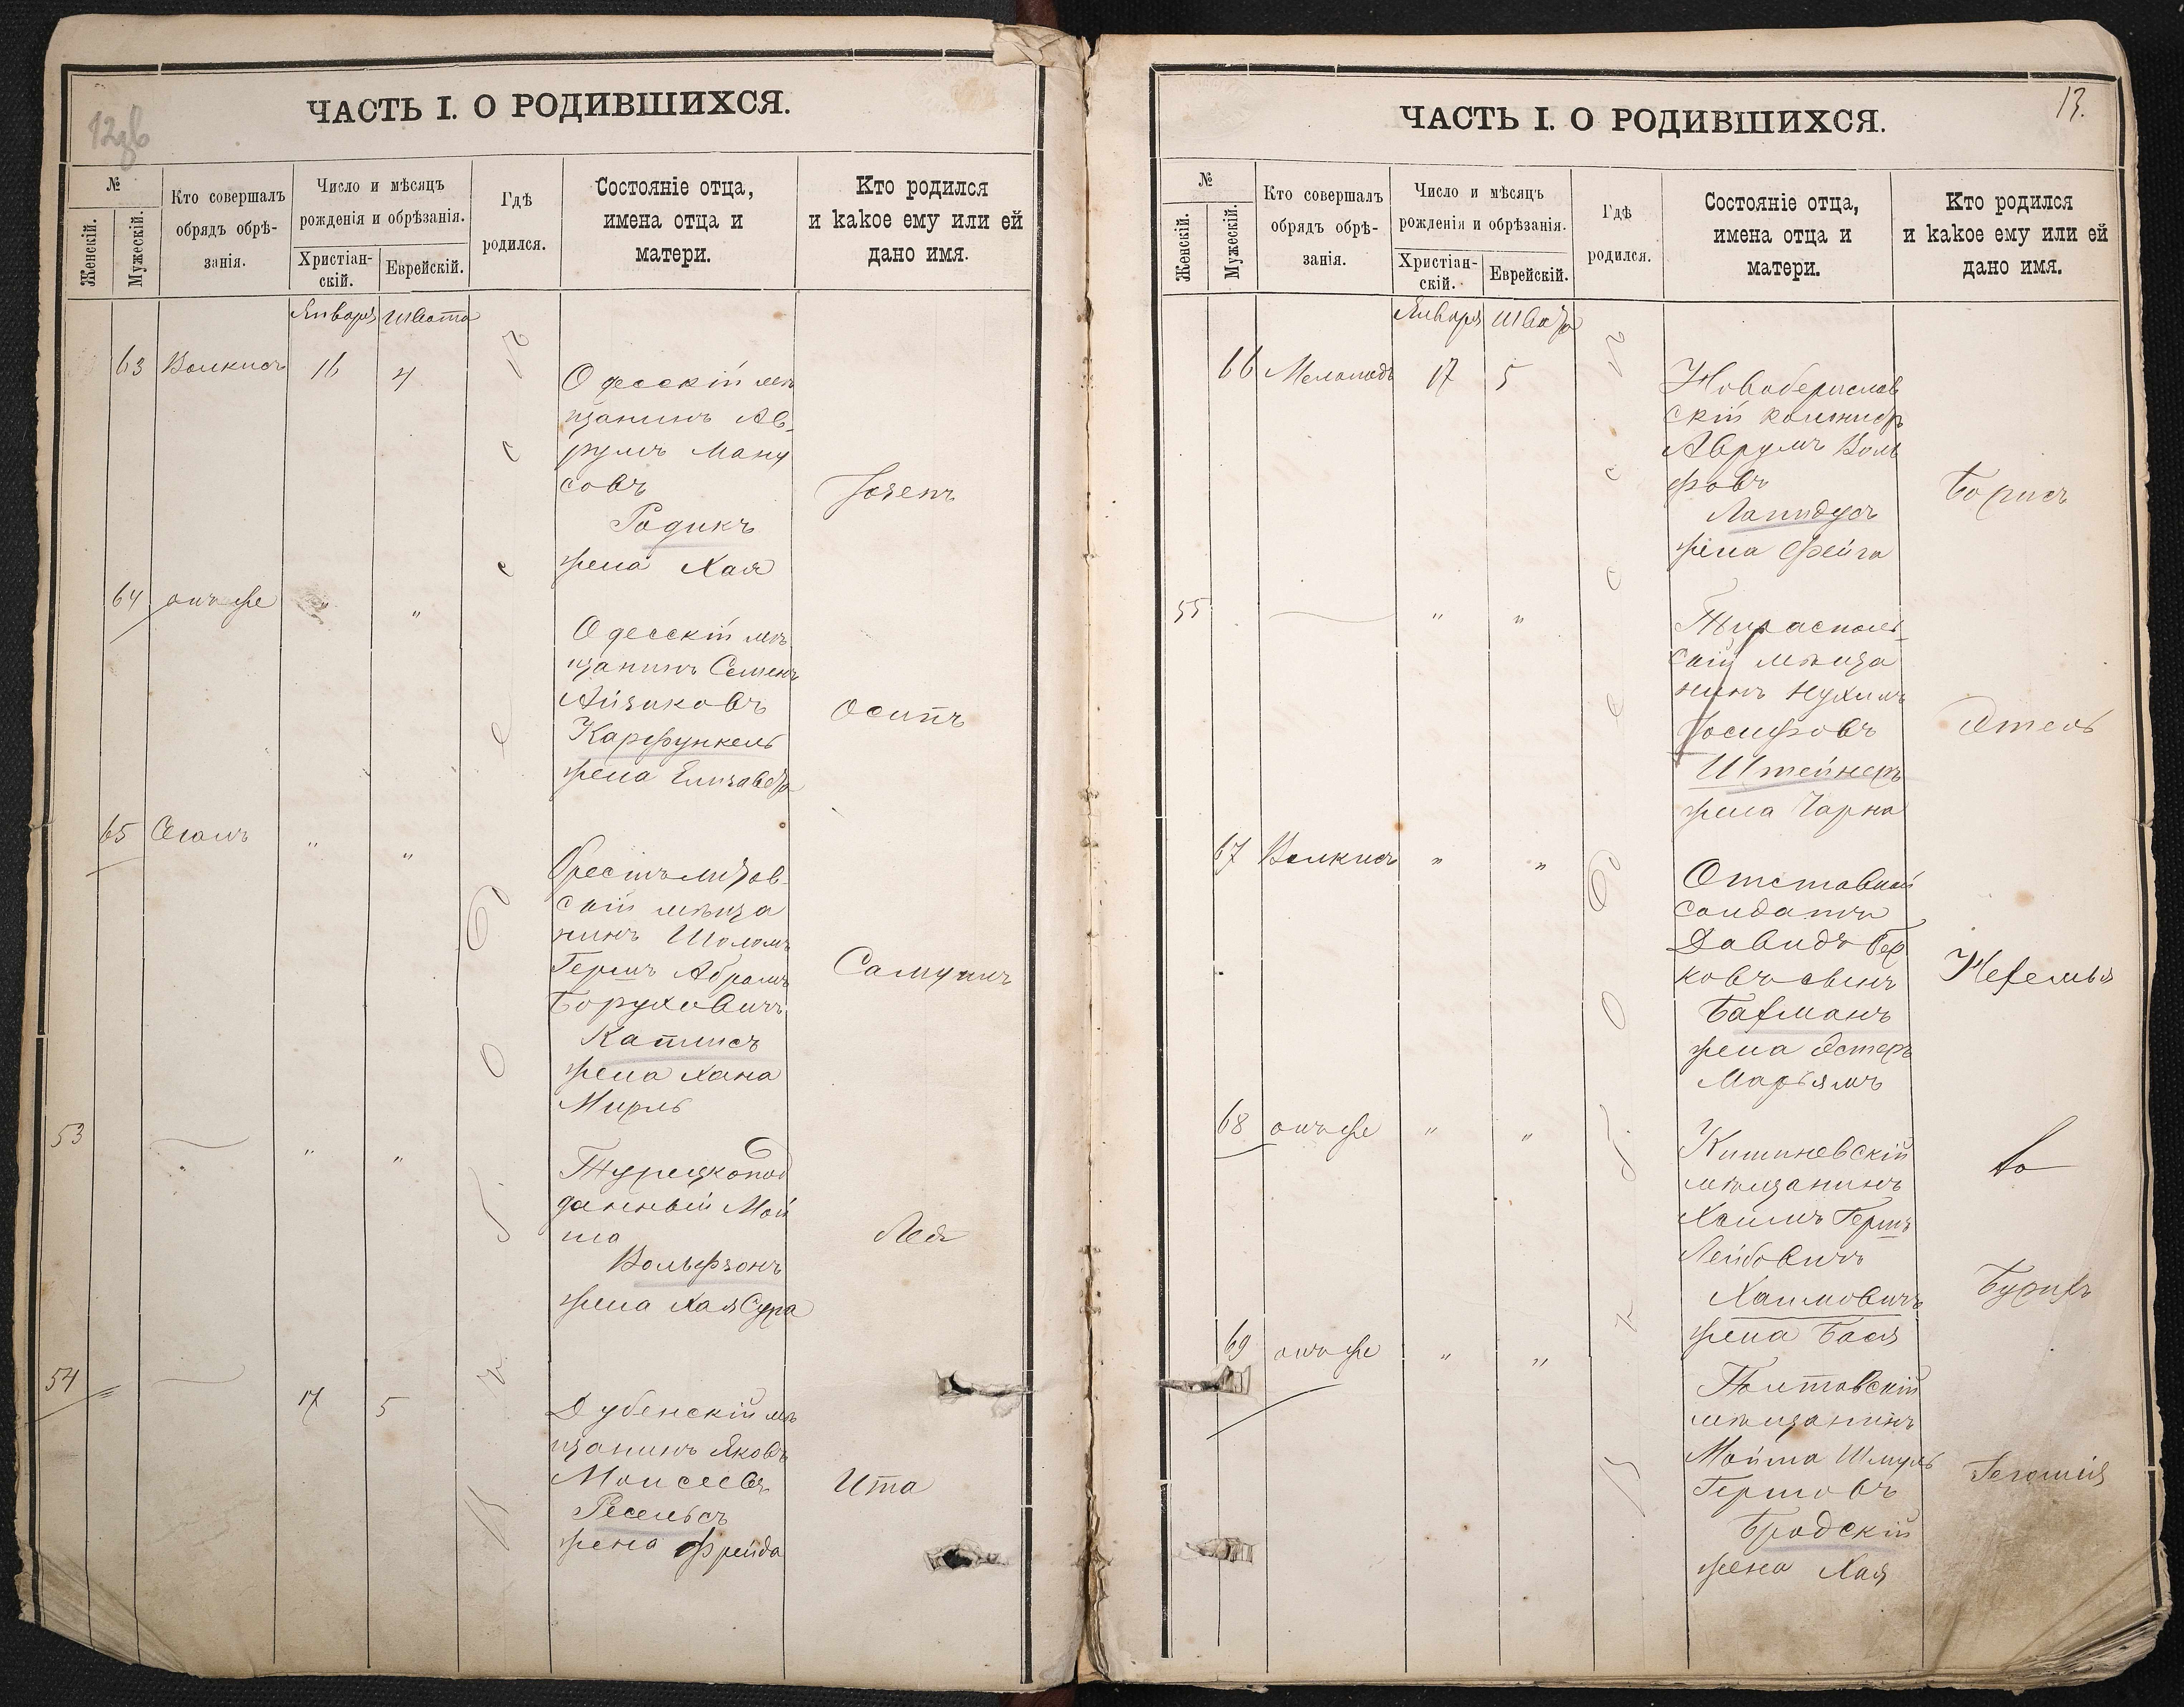 12об
ЧАСТЬ I. О РОДИВШИХСЯ.
№
Женскій.
Мужескій.
Кто совершалъ
обрядъ обрѣ-
занія.
Число и мѣсяцъ
рожденія и обрѣзанія.
Христіан-
скій.
Еврейскій.
Гдѣ
родился.
Состояніе отца,
имена отца и
матери.
Кто родился
и какое ему или ей
дано имя.
Января Швата
63 Волкисъ 16 4
Одесскій мѣ
щанинъ Ав-
румъ Ману
совъ
Родикъ
жена Хая
Іозепъ
64 онъ же " "
Одесскій мѣ
щанинъ Семенъ
Айзиковъ
Карфункель
жена Елизавета
Осипъ
65 Сегалъ " "
Брестъ литов-
скій мѣща
нинъ Шоломъ
Гершъ Абрамъ
Боруховичъ
Каплисъ
жена Хана
Мирль
Самуилъ
53 " "
Турецкопод
данный Мой
ша
Вольфзонъ
жена Хая Сура
Лея
54 17 5
Дубенскій мѣ
щанинъ Яковъ
Моисеевъ
Ресельсъ
жена Фрейда
Ита
13.
ЧАСТЬ I. О РОДИВШИХСЯ.
№
Женскій.
Мужескій.
Кто совершалъ
обрядъ обрѣ-
занія.
Число и мѣсяцъ
рожденія и обрѣзанія.
Христіан-
скій.
Еврейскій.
Гдѣ
родился.
Состояніе отца,
имена отца и
матери.
Кто родился
и какое ему или ей
дано имя.
Января Швата
66 Меламедъ 17 5
Новоберислав
скій колонистъ
Аврумъ Воль
фовъ
Лапидусъ
жена Фейга
Борисъ
55 " "
Тирасполь-
скій мѣща
нинъ Нухимъ
Іосифовъ
Штейнеръ
жена Чарна
Этель
67 Волкисъ " "
Отставной
солдатъ
Давидъ Бер
ковъ сынъ
Бахманъ
жена Эстеръ
Марьямъ
Нехемья
68 онъ же " "
Кишиневскій
мѣщанинъ
Хаимъ Гершъ
Лейбовичъ
Хаимовичъ
жена Бася
Бурихъ
69 онъ же " "
Полтавскій
мѣщанинъ
Мойша Шмуль
Гершовъ
Бродскій
жена Хая